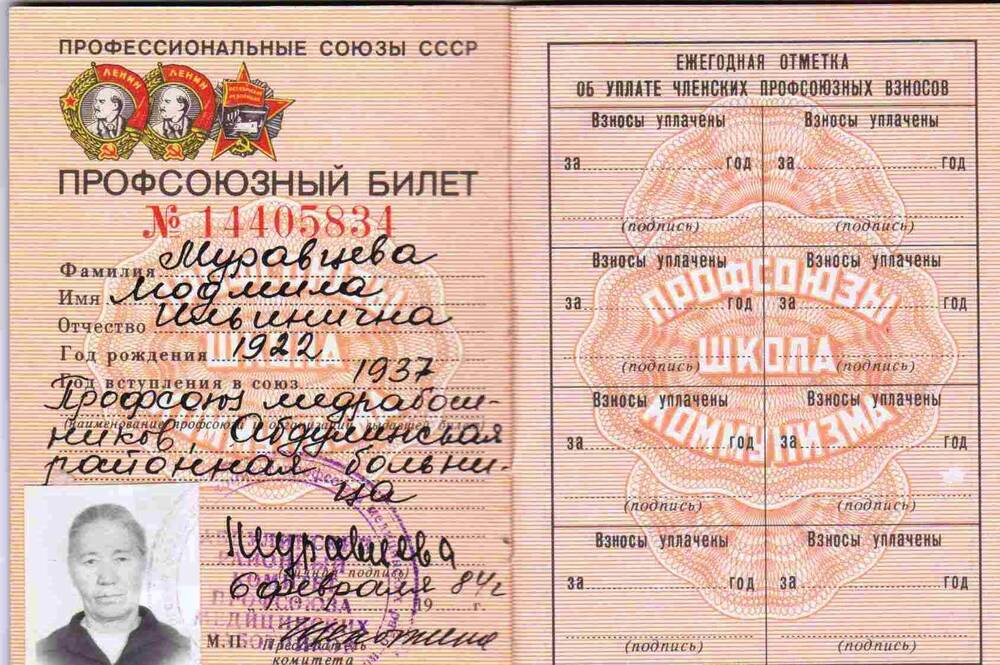 ПРОФЕССИОНАЛЬНЫЕ СОЮЗЫ СССР
ЛЕНИН ЛЕНИН
ПРОФСОЮЗНЫЙ БИЛЕТ
№ 14405834
Фамилия Муравцева
Имя Людмила
Отчество Ильинична
Год рождения 1922
Год вступления в союз 1937
Профсоюз медработ-
ников, Абдулинская
районная больни-
ца
Муравцева
(личная подпись)
6 февраля 1984 г.
М.П.
Председатель
комитета
ЕЖЕГОДНАЯ ОТМЕТКА
ОБ УПЛАТЕ ЧЛЕНСКИХ ПРОФСОЮЗНЫХ ВЗНОСОВ
Взносы уплачены Взносы уплачены
за год за год
(подпись) (подпись)
Взносы уплачены Взносы уплачены
за год за год
(подпись) (подпись)
Взносы уплачены Взносы уплачены
за год за год
(подпись) (подпись)
Взносы уплачены Взносы уплачены
за год за год
(подпись) (подпись)
ПРОФСОЮЗЫ
ШКОЛА
КОММУНИЗМА